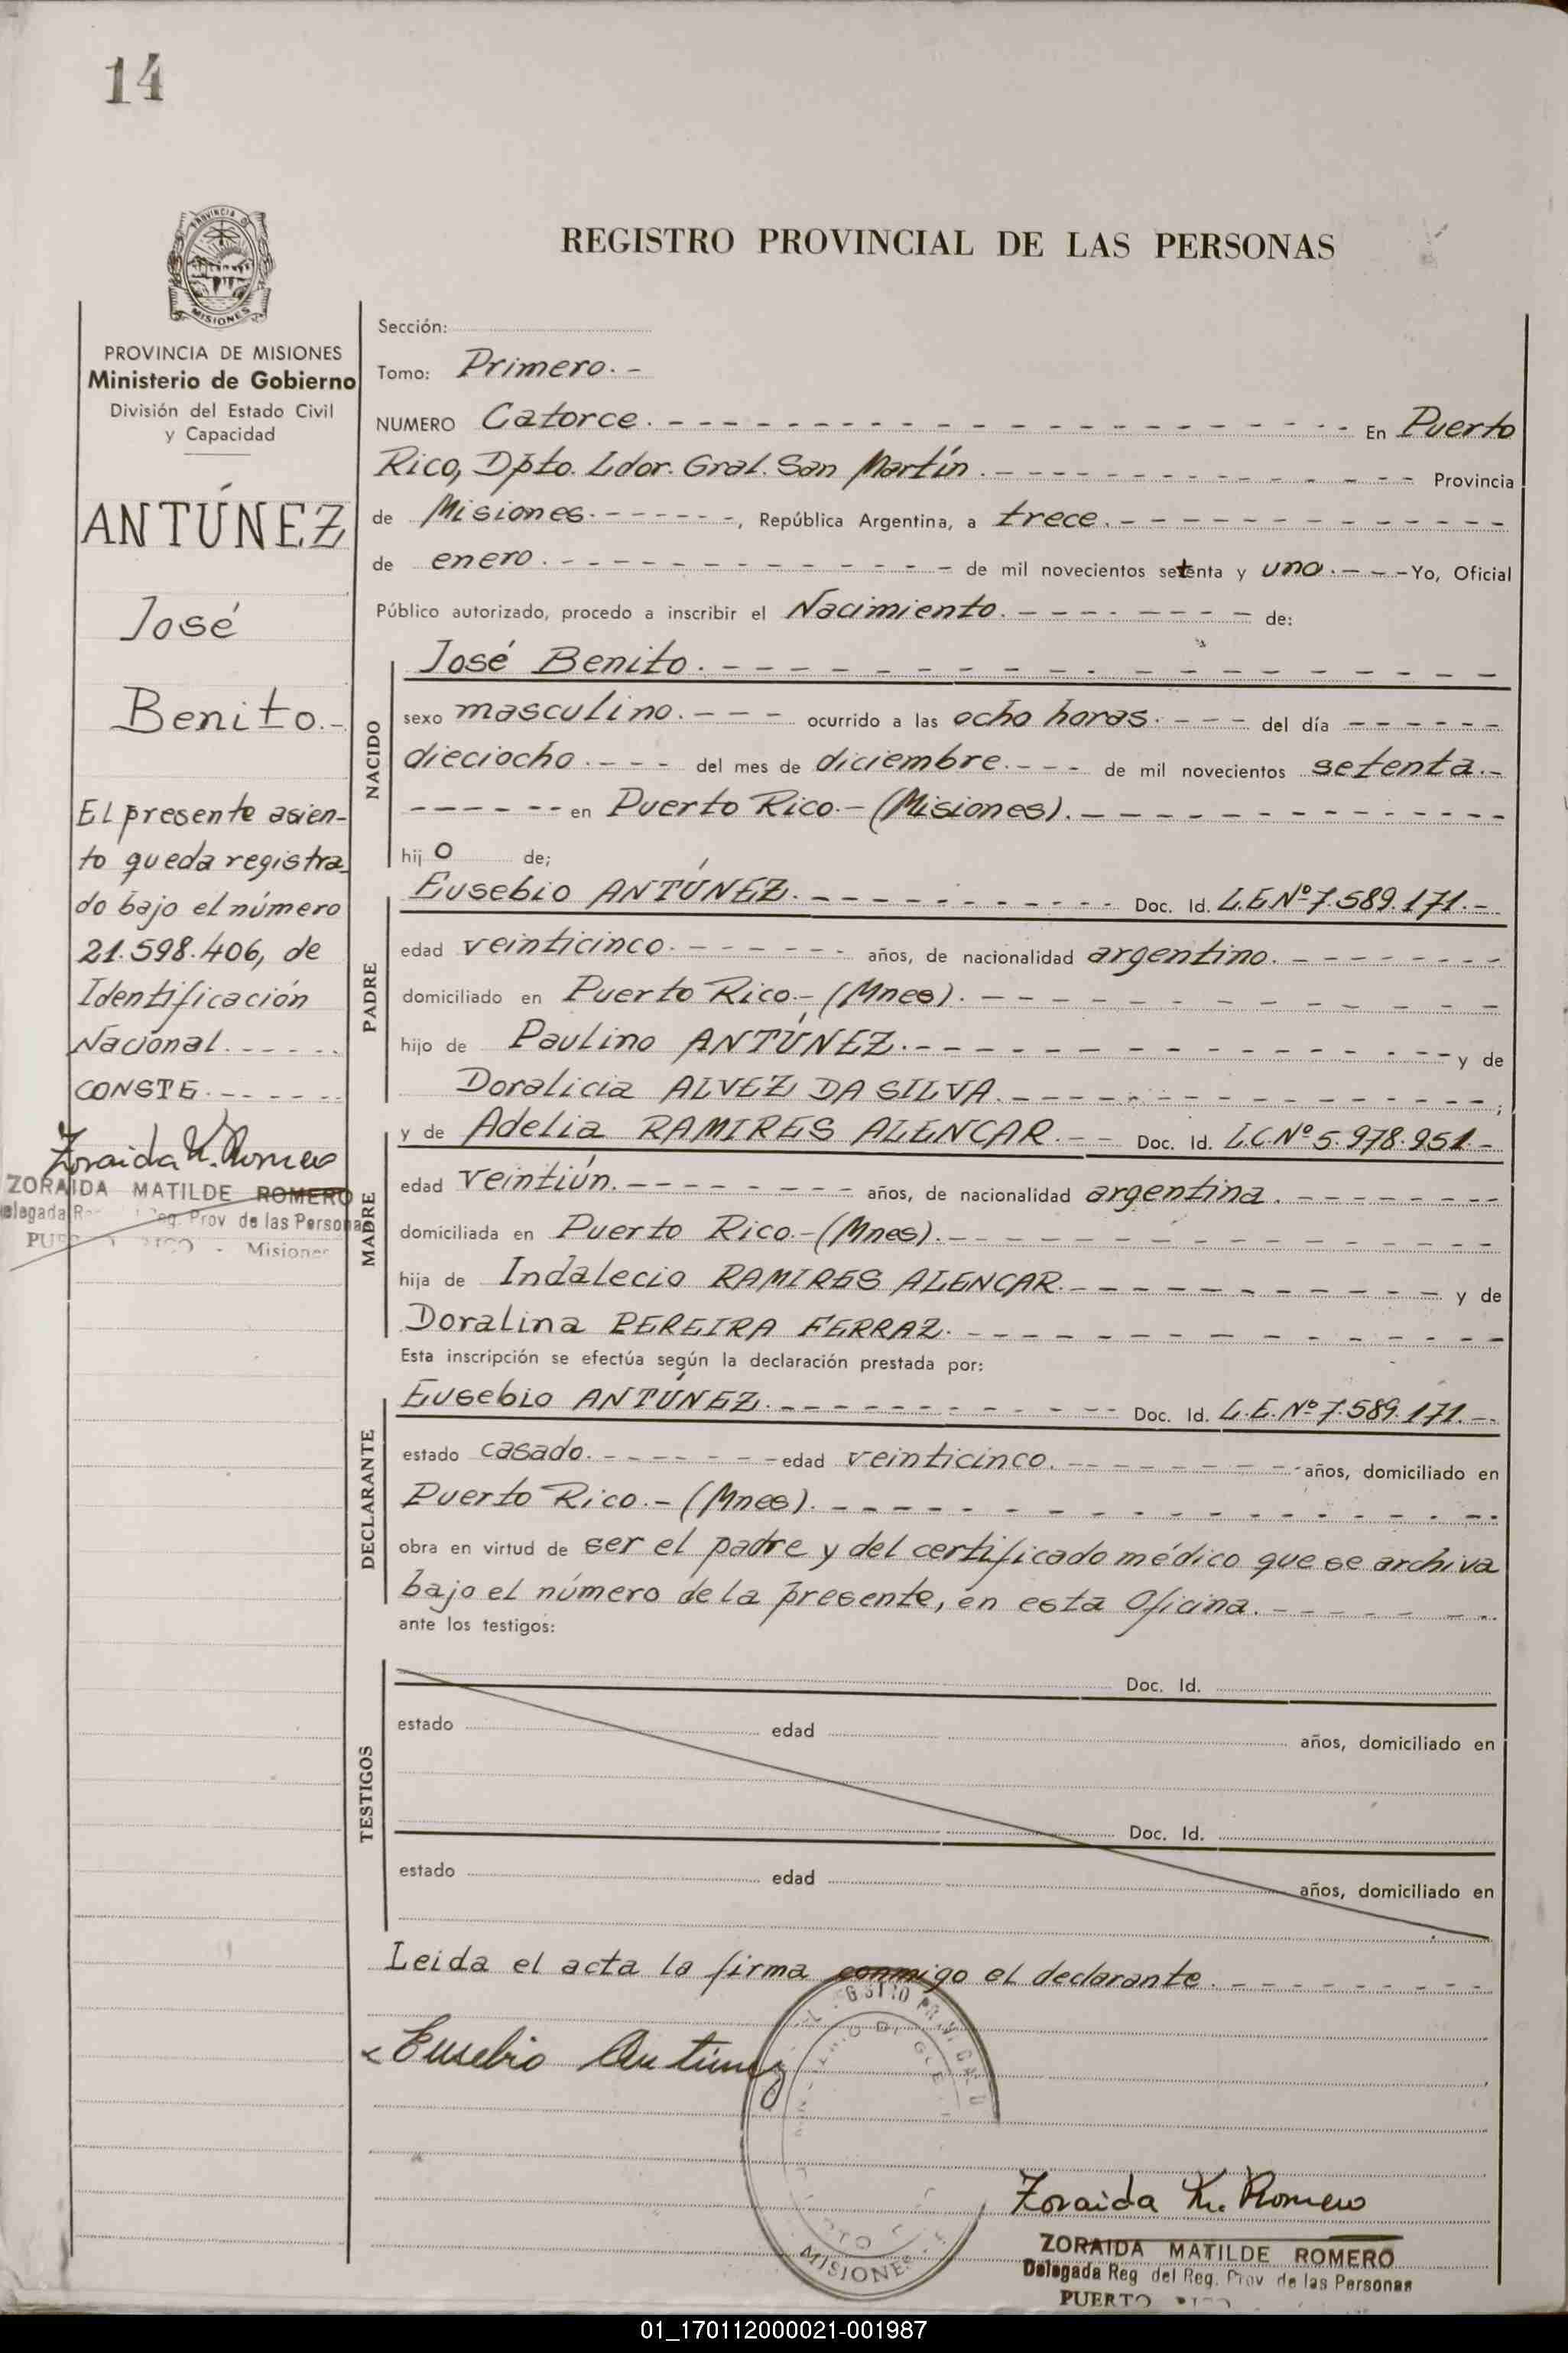 14
PROVINCIA DE MISIONES
REGISTRO PROVINCIAL DE LAS PERSONAS
PROVINCIA DE MISIONES
Ministerio de Gobierno
División del Estado Civil
y Capacidad
ANTÚNEZ
José
Benito.-
El presente asien-
to queda registra-
do bajo el número
21.598.406, de
Identificación
Nacional.-----
CONSTE.-----
Zoraida M. Romero
ZORAIDA MATILDE ROMERO
Delegada Reg. Prov de las Personas
Misiones
Sección:
Tomo: Primero.-
NUMERO Catorce.- En Puerto
Rico, Dpto. Ldor. Gral. San Martín.- Provincia
de Misiones.-, República Argentina, a trece.-
de enero.- de mil novecientos setenta y uno.- Yo, Oficial
Público autorizado, procedo a inscribir el Nacimiento.- de:
NACIDO
José Benito.-
sexo masculino.- ocurrido a las ocho horas.- del día
dieciocho.- del mes de diciembre.- de mil novecientos setenta.-
en Puerto Rico.- (Misiones).-
hijo de;
PADRE
Eusebio ANTÚNEZ.- Doc. Id. L.E.Nº 7.589.171.-
edad veinticinco.- años, de nacionalidad argentino.-
domiciliado en Puerto Rico.- (Mnes).-
hijo de Paulino ANTÚNEZ.- y de
Doralicia ALVEZ DA SILVA.- ;
MADRE
y de Adelia RAMIRES ALENCAR.- Doc. Id. L.C.Nº 5.978.951.-
edad veintiún.- años, de nacionalidad argentina.-
domiciliada en Puerto Rico.- (Mnes).-
hija de Indalecio RAMIRES ALENCAR.- y de
Doralina PEREIRA FERRAZ.-
Esta inscripción se efectúa según la declaración prestada por:
DECLARANTE
Eusebio ANTÚNEZ.- Doc. Id. L.E.Nº 7.589.171.-
estado casado.- edad veinticinco.- años, domiciliado en
Puerto Rico.- (Mnes).-
obra en virtud de ser el padre y del certificado médico que se archiva
bajo el número de la presente, en esta Oficina.-
ante los testigos:
TESTIGOS
Doc. Id.
estado edad años, domiciliado en
Doc. Id.
estado edad años, domiciliado en
Leida el acta la firma conmigo el declarante.-
Eusebio Antúnez
MISIONES
Zoraida M. Romero
ZORAIDA MATILDE ROMERO
Delegada Reg del Reg. Prov de las Personas
PUERTO RICO
01_170112000021-001987